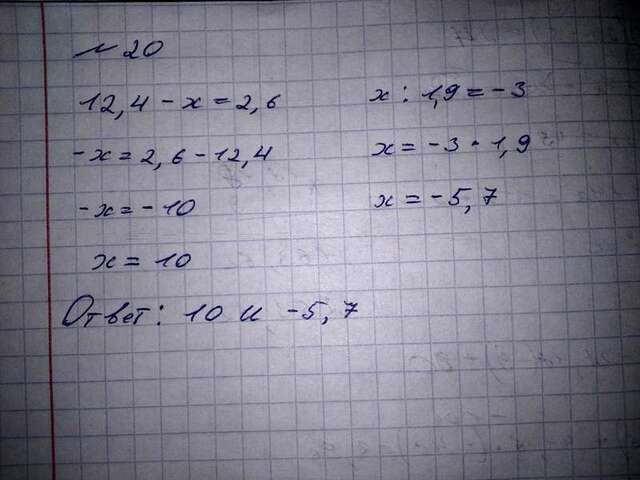 № 20
12,4 - x = 2,6
-x = 2,6 - 12,4
-x = -10
x = 10
x : 1,9 = -3
x = -3 · 1,9
x = -5,7
Ответ: 10 и -5,7